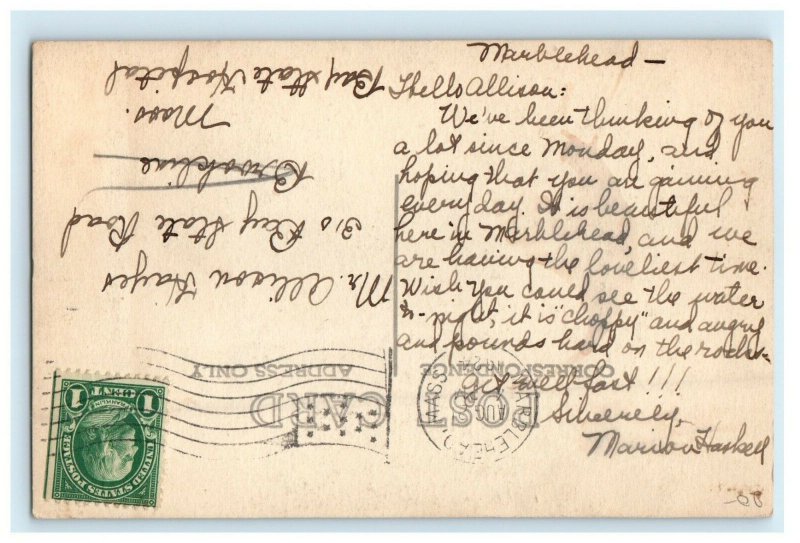 Marblehead—
Hello Allison:
We've been thinking of you
a lot since Monday, and
hoping that you are gaining
every day. It is beautiful
here in Marblehead, and we
are having the loveliest time.
Wish you could see the water
to-night, it is "choppy" and angry
and pounds hard on the rocks.
Git well fast!!!
Sincerely,
Marion Haskell
POST CARD
CORRESPONDENCE
ADDRESS ONLY
Mr. Allison Hayes
Bay State Road
Brookline
Mass.
Bay State Hospital
MARBLEHEAD
MASS.
AUG
UNITED STATES POSTAGE
FRANKLIN
1 CENT 1